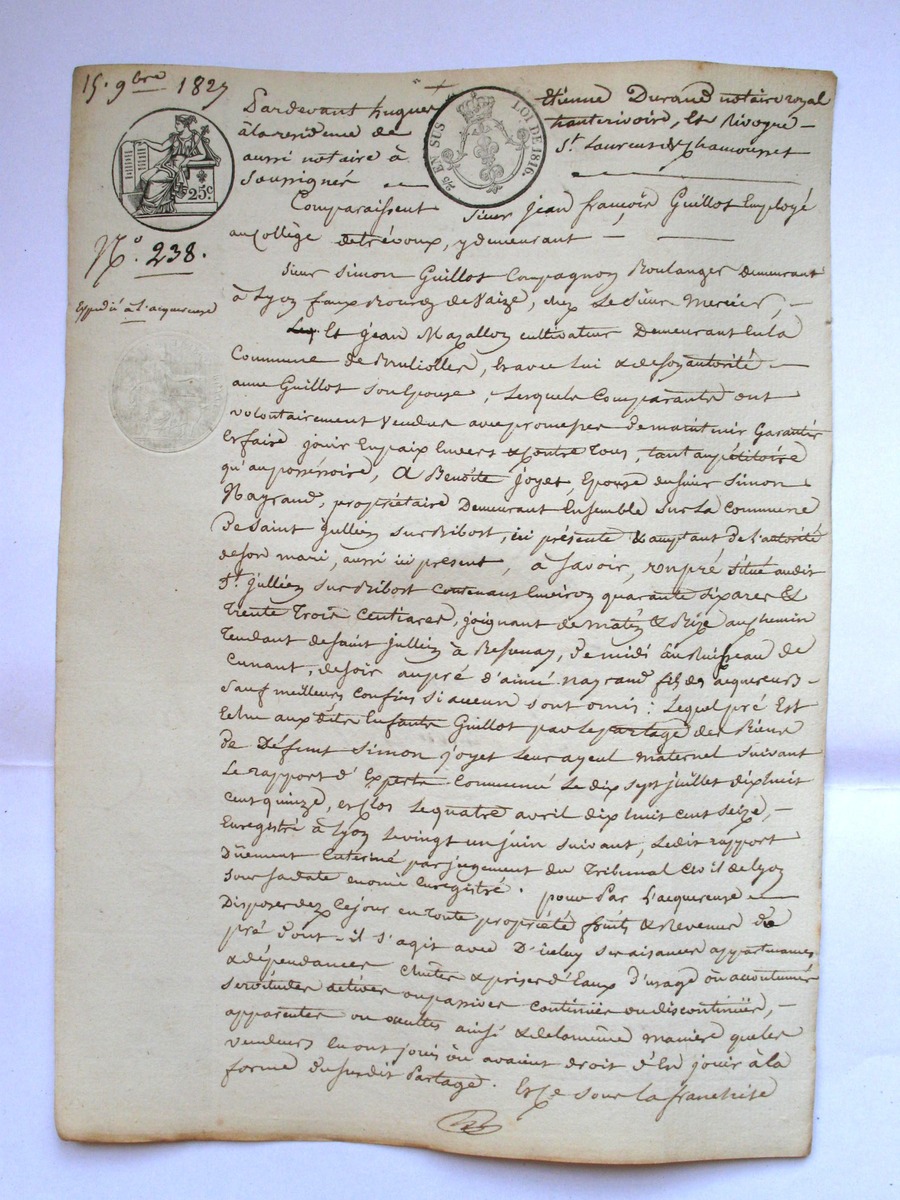 15. 9bre 1827
Pardevant hugues Etienne Durand notaire royal
à la residence de hauterivoire, Et Rivoyre
aussi notaire à St. Laurent de Chamousset
Soussignés
25 EN SUS LOI DE 1816.
25c.
Comparaissent Sieur Jean françois Guillot Employé
au Collège de trévoux, y demeurant
No. 238.
Sieur Simon Guillot Compagnon Boulanger demeurant
à Lyon faux Bourg de Vaize, chez Le Sieur Mercier,
Expédié à L'acquereuse
Et Jean Mazallon cultivateur Demeurant En la
Commune de Brulioller, Et avec lui & de son autorité
anne Guillot son Epouse, Lesquels Comparants ont
volontairement Vendus avec promesse de maintenir Garantir
Et faire jouir En paix Envers & Contre Tous, tant au pétitoire
qu'au possessoire, A Benoîte Joyet, Epouse du sieur Simon
Nagrand, propriétaire Demeurant Ensemble Sur La Commune
De Saint Jullien sur Bibost, ici présente & acceptant de l'autorité
de son mari, aussi ici present, à Savoir, un pré situé au dit
St. Jullien Sur Bibost Contenant Environ quarante six ares Et
Trente Trois Centiares, joignant de matin & Bize au chemin
Tendant de Saint Jullien à Bessenay, De midi au Ruisseau de
Cunant, de soir au pré d'aimé Nagrand fils des acquereurs
Sauf meilleurs Confins Si aucuns sont omis: Lequel pré Est
Echu aux dits Enfants Guillot par Le partage des Biens
de Défunt Simon Joyet Leur ayeul maternel Suivant
Le rapport d'Experts Commencé Le dix Sept juillet dix huit
Cent quinze, et clos Le quatre avril dix huit cent Seize,
Enregistré à Lyon Le vingt un juin suivant, Ledit rapport
Dûement Enteriné par jugement du Tribunal Civil de Lyon
Sous sa date Enregistré. pour Par L'acquereuse
Disposer dez Ce jour en toute propriété fruits & Revenus du
pré Dont-il S'agit avec D'icelui Ses aisances appartenances
& dépendances Chûtes & prises d'Eaux d'usage ou accoutumée
Servitudes actives ou passives Continües ou discontinües,
apparentes ou occultes ainsi & de la même maniere que les
vendeurs En ont joui ou avaient droit d'En jouir à la
forme du susdit Partage. Et Ce sous la franchise